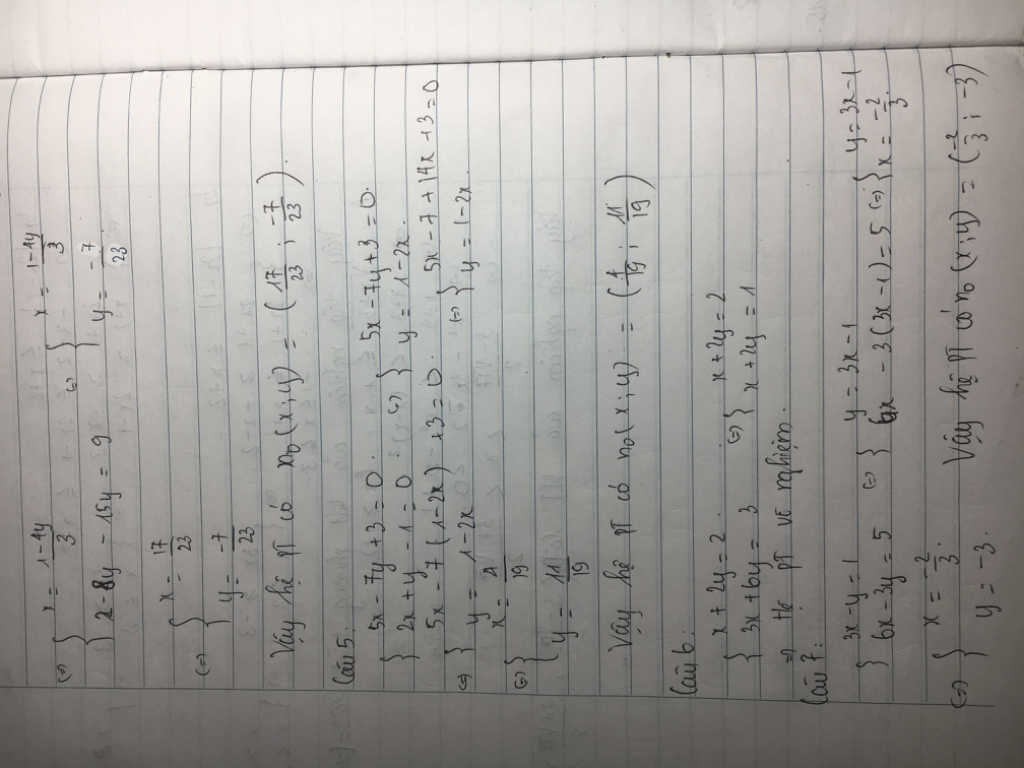 (=) { x = (1-4y)/3 (=) { x = (1-4y)/3
2 - 8y - 15y = 9 y = -7/23
(=) { x = 17/23
y = -7/23
Vậy hệ pt có n₀ (x;y) = (17/23 ; -7/23).
Câu 5:
{ 5x - 7y + 3 = 0. (=) { 5x - 7y + 3 = 0.
2x + y - 1 = 0 y = 1 - 2x.
(=) { 5x - 7(1-2x) + 3 = 0. (=) { 5x - 7 + 14x + 3 = 0
y = 1 - 2x y = 1 - 2x.
(=) { x = 4/19
y = 11/19
Vậy hệ pt có n₀ (x;y) = (4/19 ; 11/19)
Câu 6:
{ x + 2y = 2. (=) { x + 2y = 2
3x + 6y = 3 x + 2y = 1
=> Hệ pt vô nghiệm.
Câu 7:
{ 3x - y = 1 (=) { y = 3x - 1 (=) { y = 3x - 1
6x - 3y = 5 6x - 3(3x - 1) = 5 x = -2/3.
(=) { x = -2/3.
y = -3. Vậy hệ pt có n₀ (x;y) = (-2/3 ; -3)